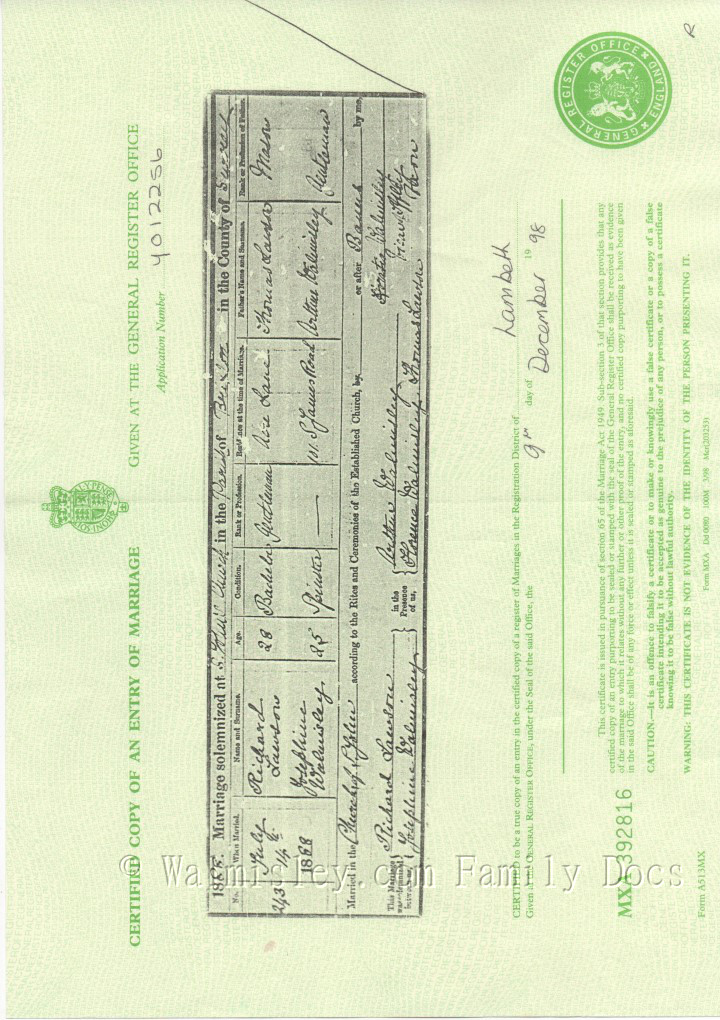 CERTIFIED COPY OF AN ENTRY OF MARRIAGE
GIVEN AT THE GENERAL REGISTER OFFICE
Application Number Y012256
R
GENERAL REGISTER OFFICE ENGLAND
1888. Marriage solemnized at S. John's Church in the Parish of Brixton in the County of Surrey
No. When Married. Name and Surname. Age. Condition. Rank or Profession. Residence at the time of Marriage. Father's Name and Surname. Rank or Profession of Father.
243 July 14 1888 Richard Lawson 28 Bachelor Gentleman Lane Thomas Lawson Mason
Josephine Walmisley 25 Spinster — 101 St James Road Arthur Walmisley Gentleman
Married in the Church of S. John according to the Rites and Ceremonies of the Established Church, by or after Banns by me,
This Marriage was solemnized between us, Richard Lawson Josephine Walmisley in the Presence of us, Arthur Walmisley Florence Walmisley Thomas Lawson Horatio Walmisley
CERTIFIED to be a true copy of an entry in the certified copy of a register of Marriages in the Registration District of Lambeth
Given at the GENERAL REGISTER OFFICE, under the Seal of the said Office, the 9th day of December 1998
This certificate is issued in pursuance of section 65 of the Marriage Act 1949. Sub-section 3 of that section provides that any
certified copy of an entry purporting to be sealed or stamped with the seal of the General Register Office shall be received as evidence
of the marriage to which it relates without any further or other proof of the entry, and no certified copy purporting to have been given
in the said Office shall be of any force or effect unless it is sealed or stamped as aforesaid.
CAUTION:—It is an offence to falsify a certificate or to make or knowingly use a false certificate or a copy of a false
certificate intending it to be accepted as genuine to the prejudice of any person, or to possess a certificate
knowing it to be false without lawful authority.
WARNING: THIS CERTIFICATE IS NOT EVIDENCE OF THE IDENTITY OF THE PERSON PRESENTING IT.
MXA 392816
Form A513MX
Form MXA Dd 0080 100M 3/98 Mcr(202251)
© Walmisley.com Family Docs